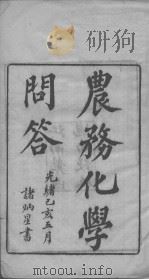 研狗
農務化學
問答
光緒己亥五月
諸炳星書
www.mtoou.info